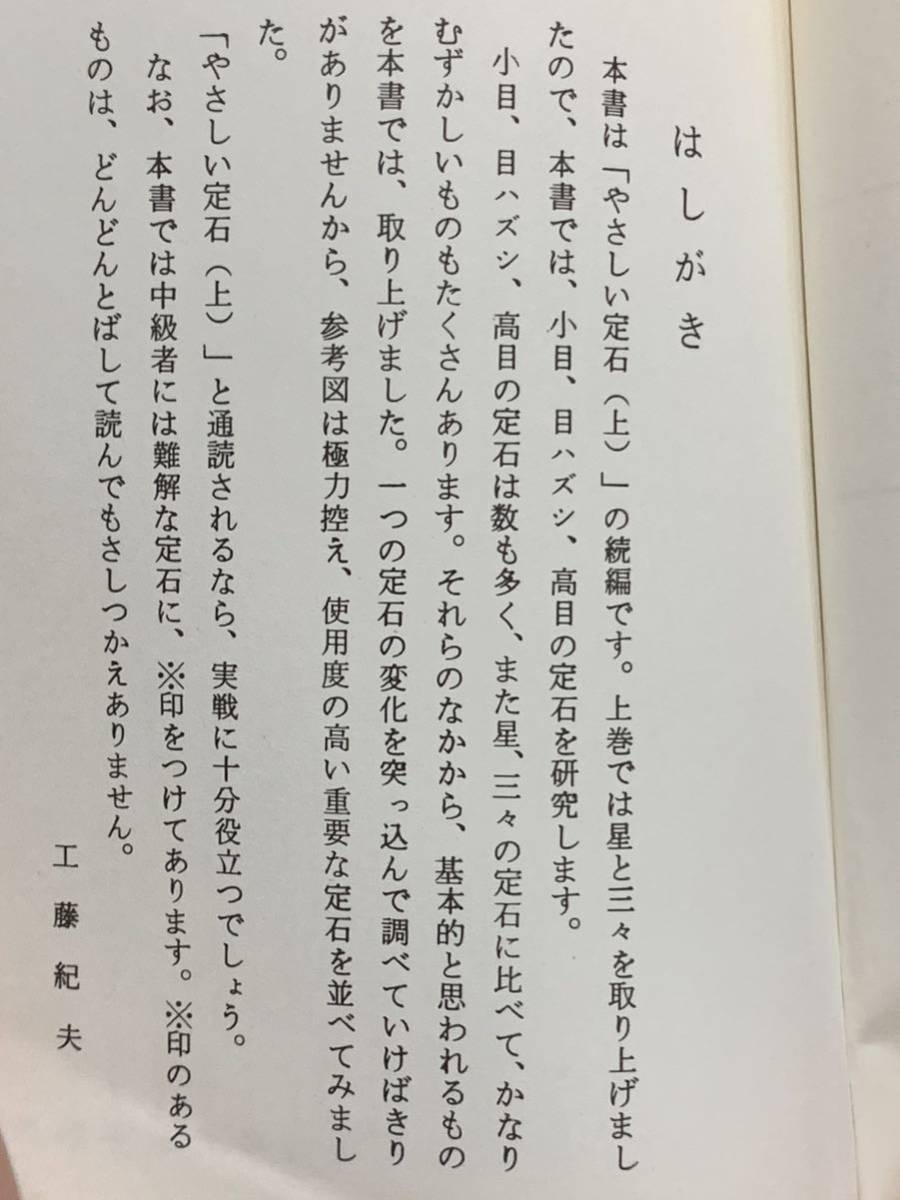 はしがき
本書は「やさしい定石(上)」の続編です。上巻では星と三々を取り上げまし
たので、本書では、小目、目ハズシ、高目の定石を研究します。
小目、目ハズシ、高目の定石は数も多く、また星、三々の定石に比べて、かなり
むずかしいものもたくさんあります。それらのなかから、基本的と思われるもの
を本書では、取り上げました。一つの定石の変化を突っ込んで調べていけばきり
がありませんから、参考図は極力控え、使用度の高い重要な定石を並べてみまし
た。
「やさしい定石(上)」と通読されるなら、実戦に十分役立つでしょう。
なお、本書では中級者には難解な定石に、※印をつけてあります。※印のある
ものは、どんどんとばして読んでもさしつかえありません。
工藤紀夫